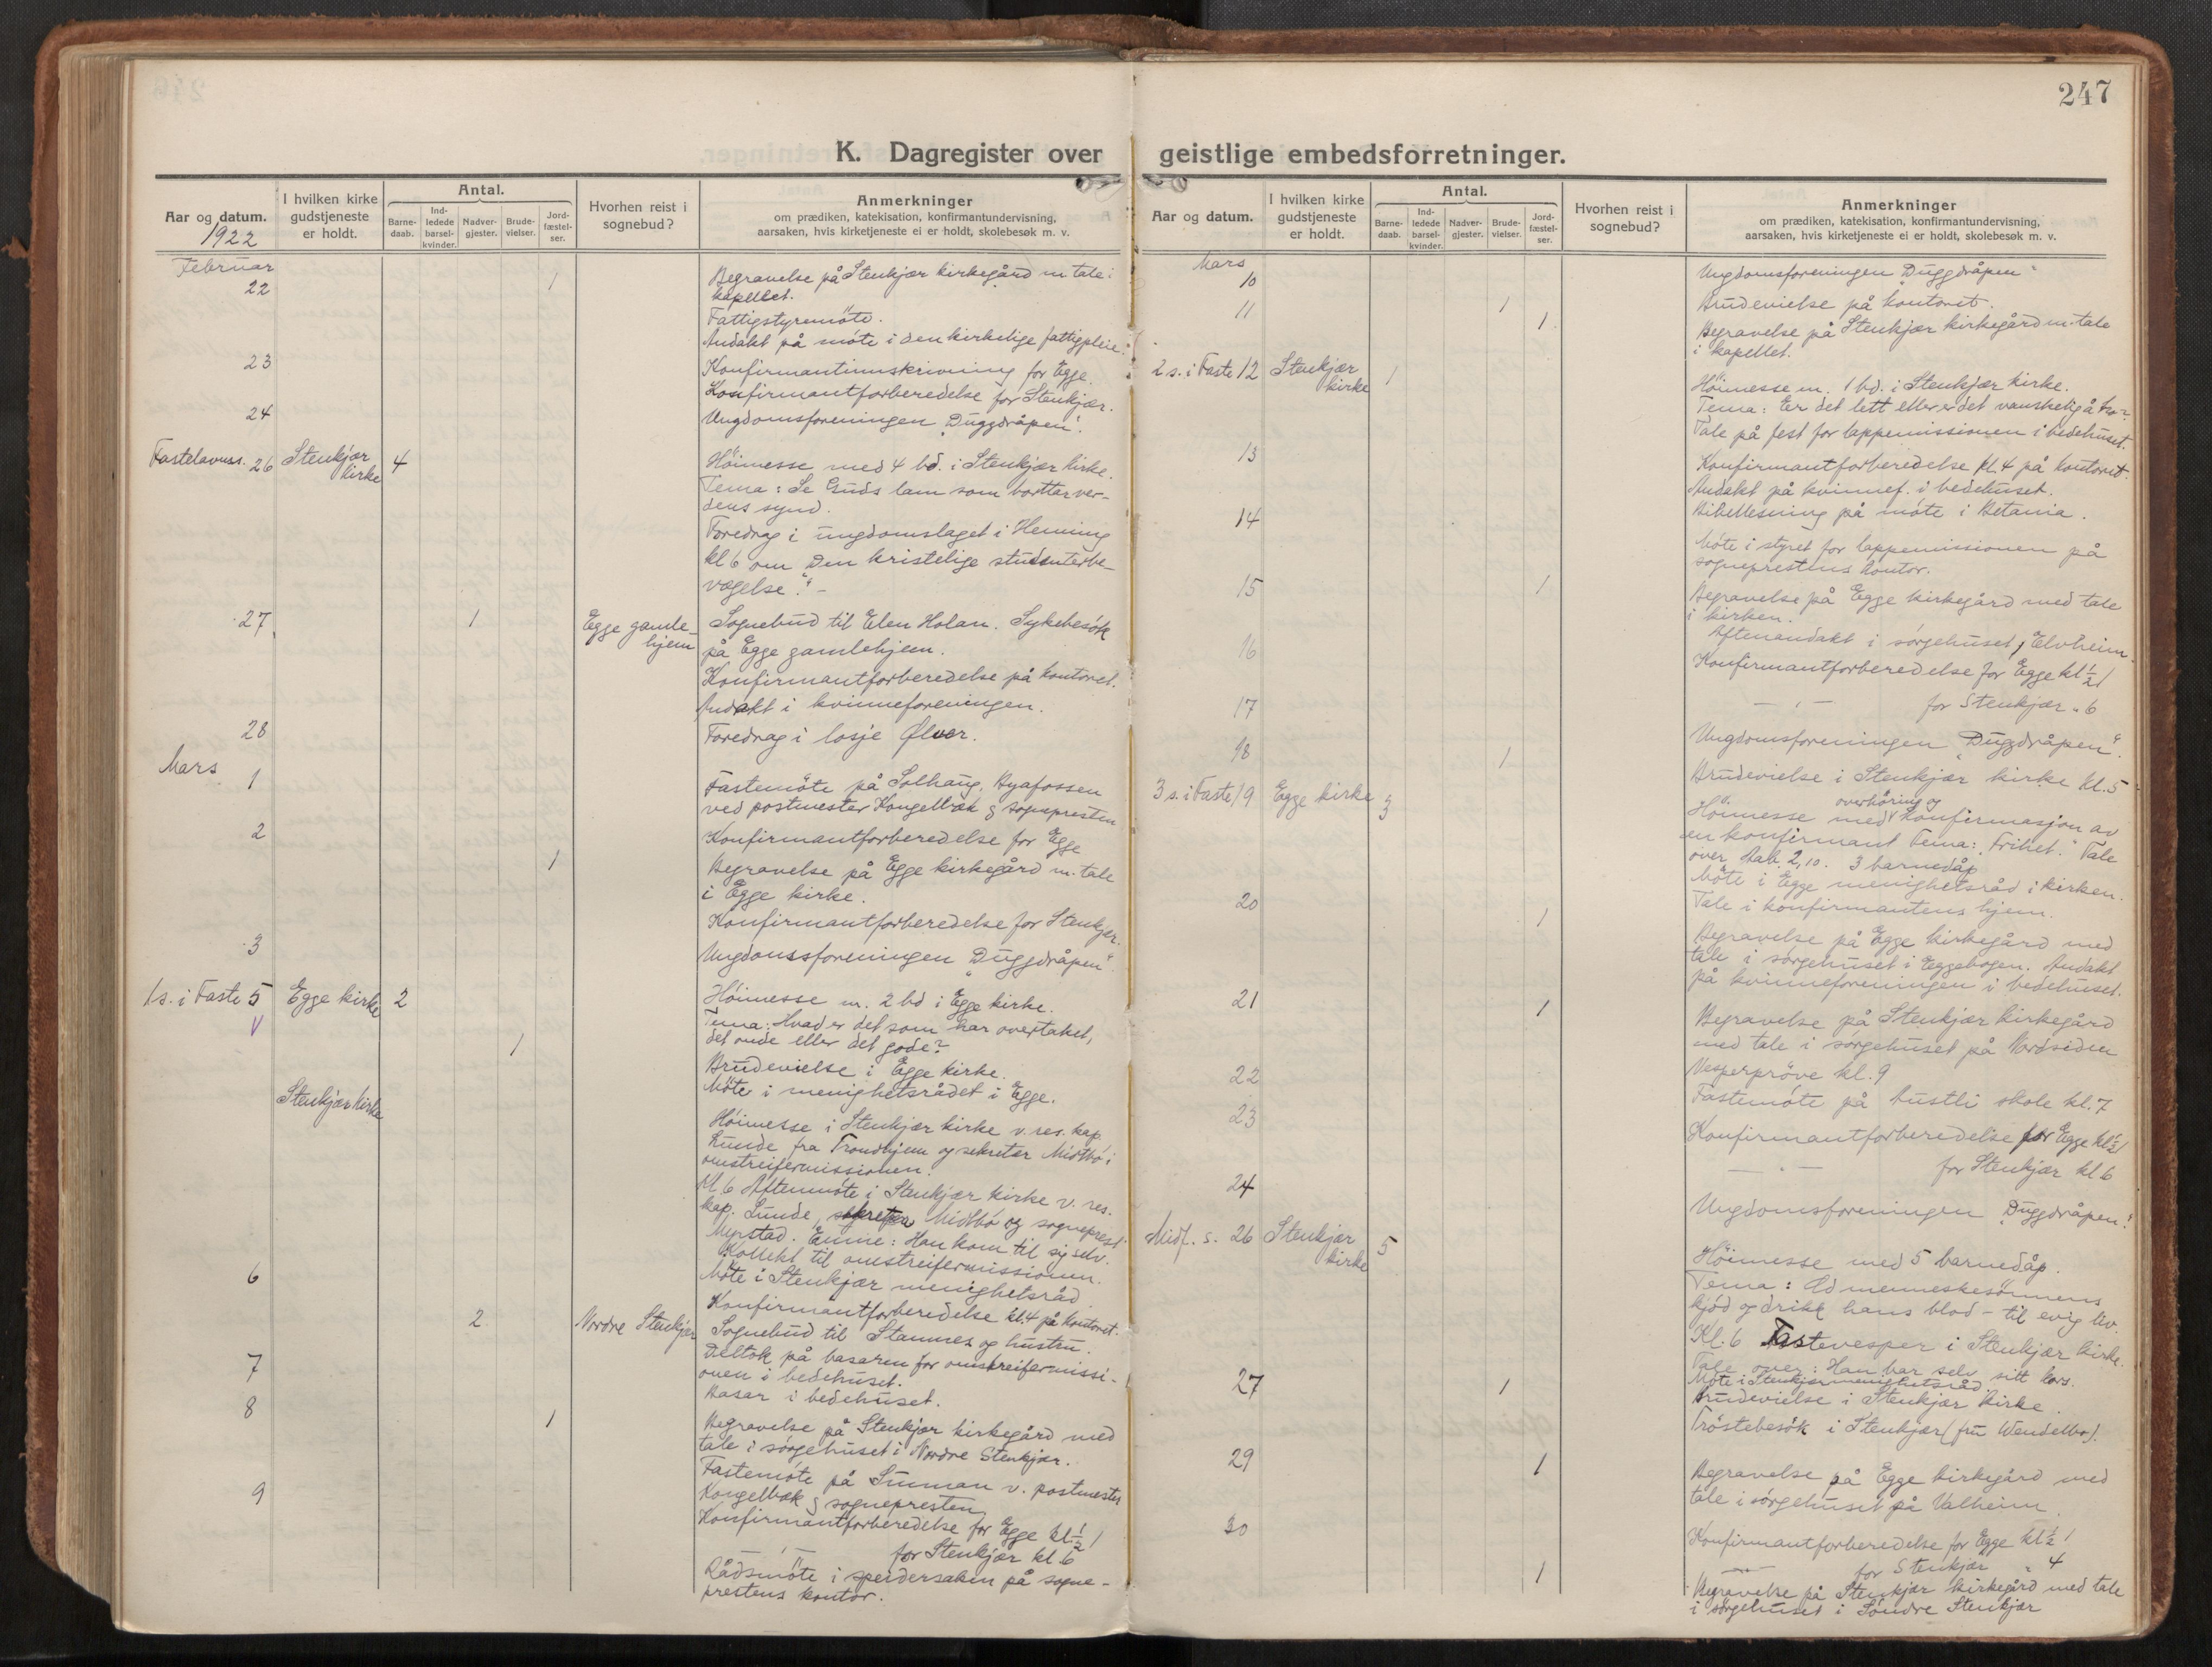 247
K. Dagregister over geistlige embedsforretninger.
Aar og datum.
1922
I hvilken kirke gudstjeneste er holdt.
Antal.
Barnedaab.
Indledede barselkvinder.
Nadvergjester.
Brudevielser.
Jordfæstelser.
Hvorhen reist i sognebud?
Anmerkninger
om prædiken, katekisation, konfirmantundervisning,
aarsaken, hvis kirketjeneste ei er holdt, skolebesøk m. v.
Februar
22 1 Begravelse på Stenkjær kirkegård m tale i
kapellet.
Fattigstyremöte.
Andakt på möte i den kirkelige fattigpleie.
23 Konfirmantinnskrivning for Egge.
Konfirmantforberedelse for Stenkjær.
24 Ungdomsforeningen „Duggdråpen".
Fastelavnss. 26 Stenkjær kirke 4 Höimesse med 4 bd. i Stenkjær kirke.
Tema: Se Guds lam som borttar ver-
dens synd.
Foredrag i ungdomslaget i Henning
kl 6 om „Den kristelige studenterbe-
vægelse". -
27 1 Egge gamle-
hjem
Sognebud til Elen Holan. Sykebesök
på Egge gamlehjem.
Konfirmantforberedelse på kontoret.
Andakt i kvinneforeningen.
28 Foredrag i losje Ølver.
Mars
1 Fastemöte på Solhaug, Byafossen
ved postmester Kongelbæk & sognepresten
2 Konfirmantforberedelse for Egge
1 Begravelse på Egge kirkegård m. tale
i Egge kirke.
Konfirmantforberedelse for Stenkjær.
3 Ungdomsforeningen „Duggdråpen".
1 s. i Faste 5 Egge kirke 2 Höimesse m. 2 bd i Egge kirke.
V
Tema: Hvad er det som har overtaket,
det onde eller det gode?
1 Brudevielse i Egge kirke.
Möte i menighetsrådet i Egge.
Stenkjær kirke Höimesse i Stenkjær kirke v. res. kap.
Lunde fra Trondhjem og sekretær Midtbö i
omstreifermissionen.
Kl 6 Aftenmöte i Stenkjær kirke v. res.
kap. Lunde, sekretær Midtbö og sogneprest
Myrstad. Emne: Han kom til sig selv.
Kollekt til omstreifermissionen.
6 Möte i Stenkjær menighetsråd
Konfirmantforberedelse kl. 4 på kontoret.
2 Nordre Stenkjær Sognebud til Stamnes og hustru.
7 Deltok på basaren for omstreifermissi-
onen i bedehuset.
8 Basar i bedehuset.
1 Begravelse på Stenkjær kirkegård med
tale i sörgehuset i Nordre Stenkjær.
Fastemöte på Sunnan v. postmester
Kongelbæk & sognepresten
9 Konfirmantforberedelse for Egge kl ½ 1
— " — for Stenkjær kl 6
Rådsmöte i speidersaken på sogne-
prestens kontor.
Aar og datum.
I hvilken kirke gudstjeneste er holdt.
Antal.
Barnedaab.
Indledede barselkvinder.
Nadvergjester.
Brudevielser.
Jordfæstelser.
Hvorhen reist i sognebud?
Anmerkninger
om prædiken, katekisation, konfirmantundervisning,
aarsaken, hvis kirketjeneste ei er holdt, skolebesøk m. v.
Mars
10 Ungdomsforeningen „Duggdråpen"
11 1 Brudevielse på kontoret.
1 Begravelse på Stenkjær kirkegård m. tale
i kapellet.
2 s. i Faste 12 Stenkjær kirke 1 Höimesse m. 1 bd. i Stenkjær kirke.
Tema: Er det lett eller er det vanskelig å tro?
Tale på fest for lappemissionen i bedehuset.
13 Konfirmantforberedelse kl. 4 på kontoret.
Andakt på kvinnef. i bedehuset.
Bibellesning på möte i Betania.
14 Möte i styret for lappemissionen på
sogneprestens kontor.
15 1 Begravelse på Egge kirkegård med tale
i kirken.
Aftenandakt i sörgehuset, Elvheim.
16 Konfirmantforberedelse for Egge kl ½ 1
— " — for Stenkjær " 6
17 Ungdomsforeningen „Duggdråpen".
18 1 Brudevielse i Stenkjær kirke kl. 5
3 s. i Faste 19 Egge kirke 3 overhöring og
Höimesse med konfirmasjon av
en konfirmant Tema: „Frihet." Tale
over Aab 2,10. 3 barnedåp
Möte i Egge menighetsråd i kirken.
Tale i konfirmantens hjem.
20 1 Begravelse på Egge kirkegård med
tale i sörgehuset i Eggebogen. Andakt
på kvinneforeningen i bedehuset.
21 1 Begravelse på Stenkjær kirkegård
med tale i sörgehuset på Nordsiden
22 Vesperpröve kl. 9
Fastemöte på Austli skole kl. 7
23 Konfirmantforberedelse for Egge kl ½ 1
— " — for Stenkjær kl 6
24 Ungdomsforeningen „Duggdråpen".
Midf. s. 26 Stenkjær kirke 5 Höimesse med 5 barnedåp.
Tema: Æd menneskesönnens
kjöd og drikk hans blod - til evig liv.
Kl. 6 Fastevesper i Stenkjær kirke.
Tale over: Han bar selv sitt kors.
Möte i Stenkjær menighetsråd
27 1 Brudevielse i Stenkjær kirke.
Tröstebesök i Stenkjær (fru Wendelbo).
29 1 Begravelse på Egge kirkegård med
tale i sörgehuset på Valheim.
30 Konfirmantforberedelse for Egge kl ½ 1
— " — for Stenkjær " 4
1 Begravelse på Stenkjær kirkegård med tale
i sörgehuset i Söndre Stenkjær